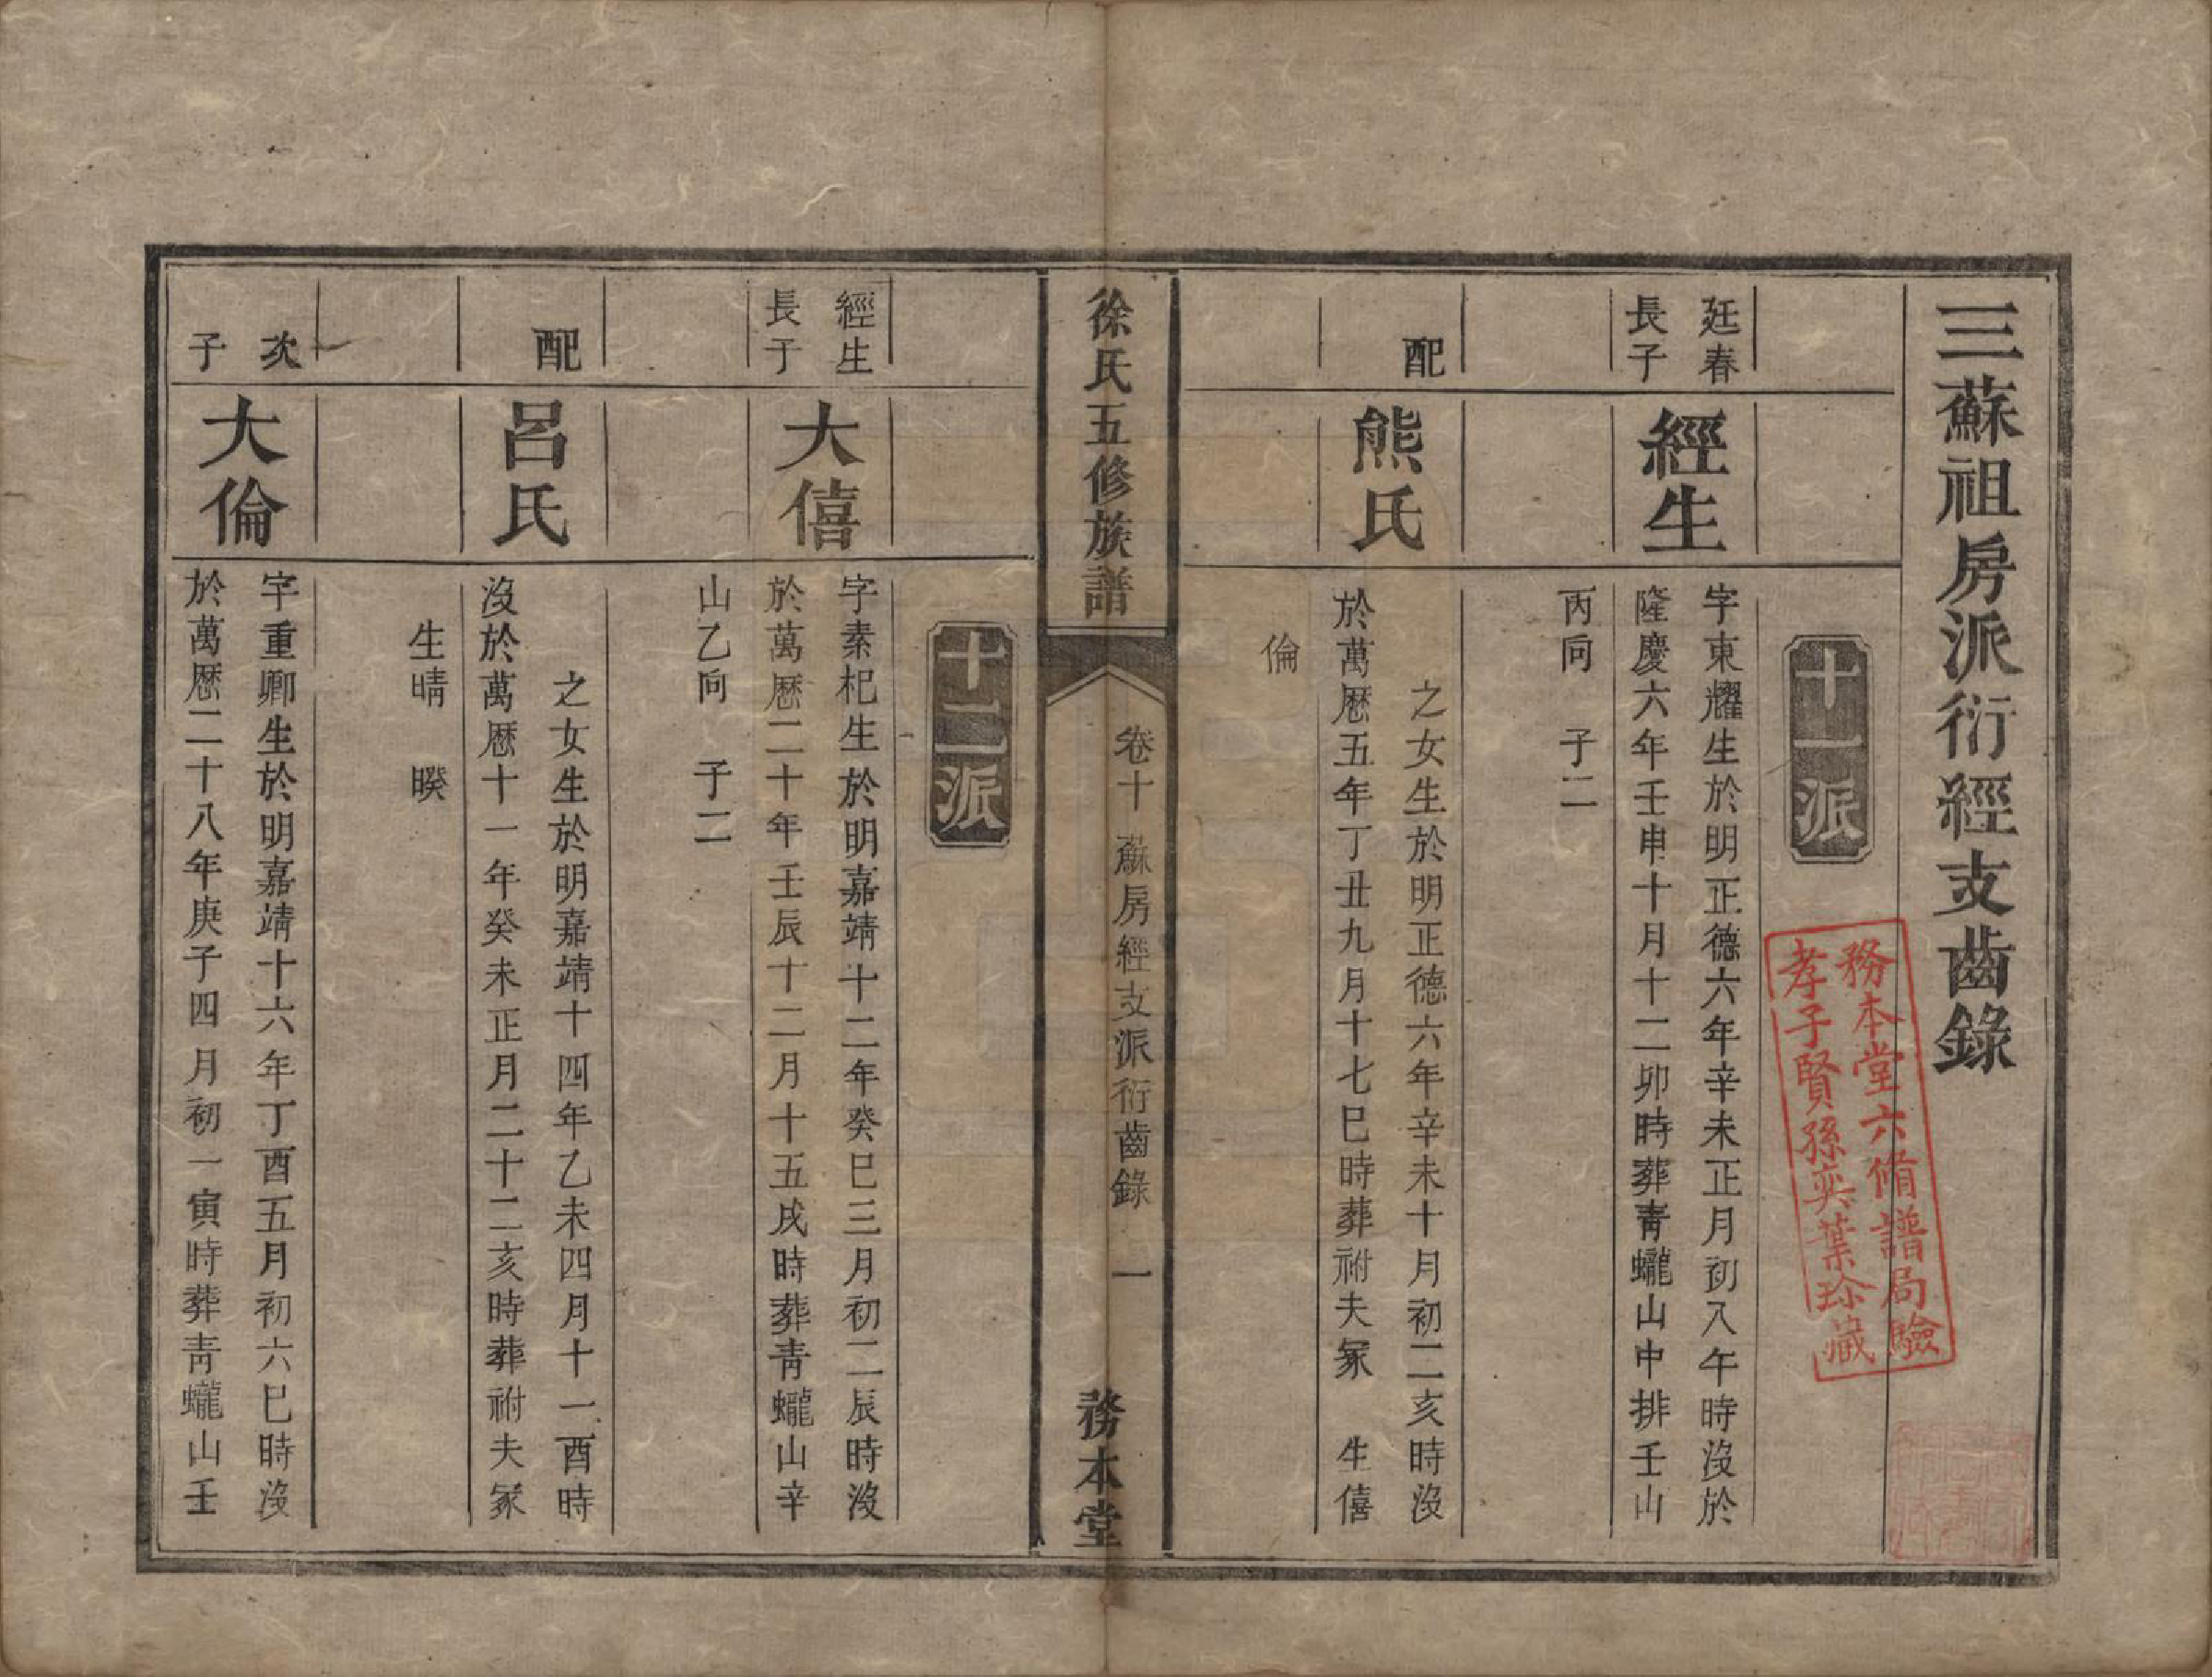 三蘇祖房派衍經支齒錄
務本堂六脩譜局驗
孝子賢孫奕葉珍藏
十一派
廷春
長子
經生
字東耀生於明正德六年辛未正月初八午時沒於
隆慶六年壬申十月十二卯時葬青蠬山中排壬山
丙向　子二
配
熊氏
之女生於明正德六年辛未十月初二亥時沒
於萬歷五年丁丑九月十七巳時葬祔夫冢　生僖
倫
徐氏五修族譜
卷十　蘇房經支派衍齒錄　一
務本堂
十二派
經生
長子
大僖
字素杞生於明嘉靖十二年癸巳三月初二辰時沒
於萬歷二十年壬辰十二月十五戌時葬青蠬山辛
山乙向　子二
配
呂氏
之女生於明嘉靖十四年乙未四月十一酉時
沒於萬歷十一年癸未正月二十二亥時葬祔夫冢
生晴　暌
次
子
大倫
字重卿生於明嘉靖十六年丁酉五月初六巳時沒
於萬歷二十八年庚子四月初一寅時葬青蠬山壬